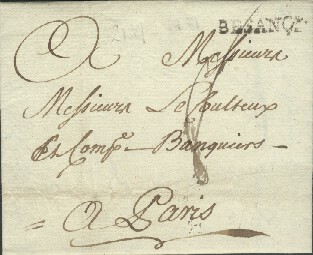 BESANÇON
A Messieurs
Messieurs LeCoulteux
Et Comp.e Banquiers
= A Paris